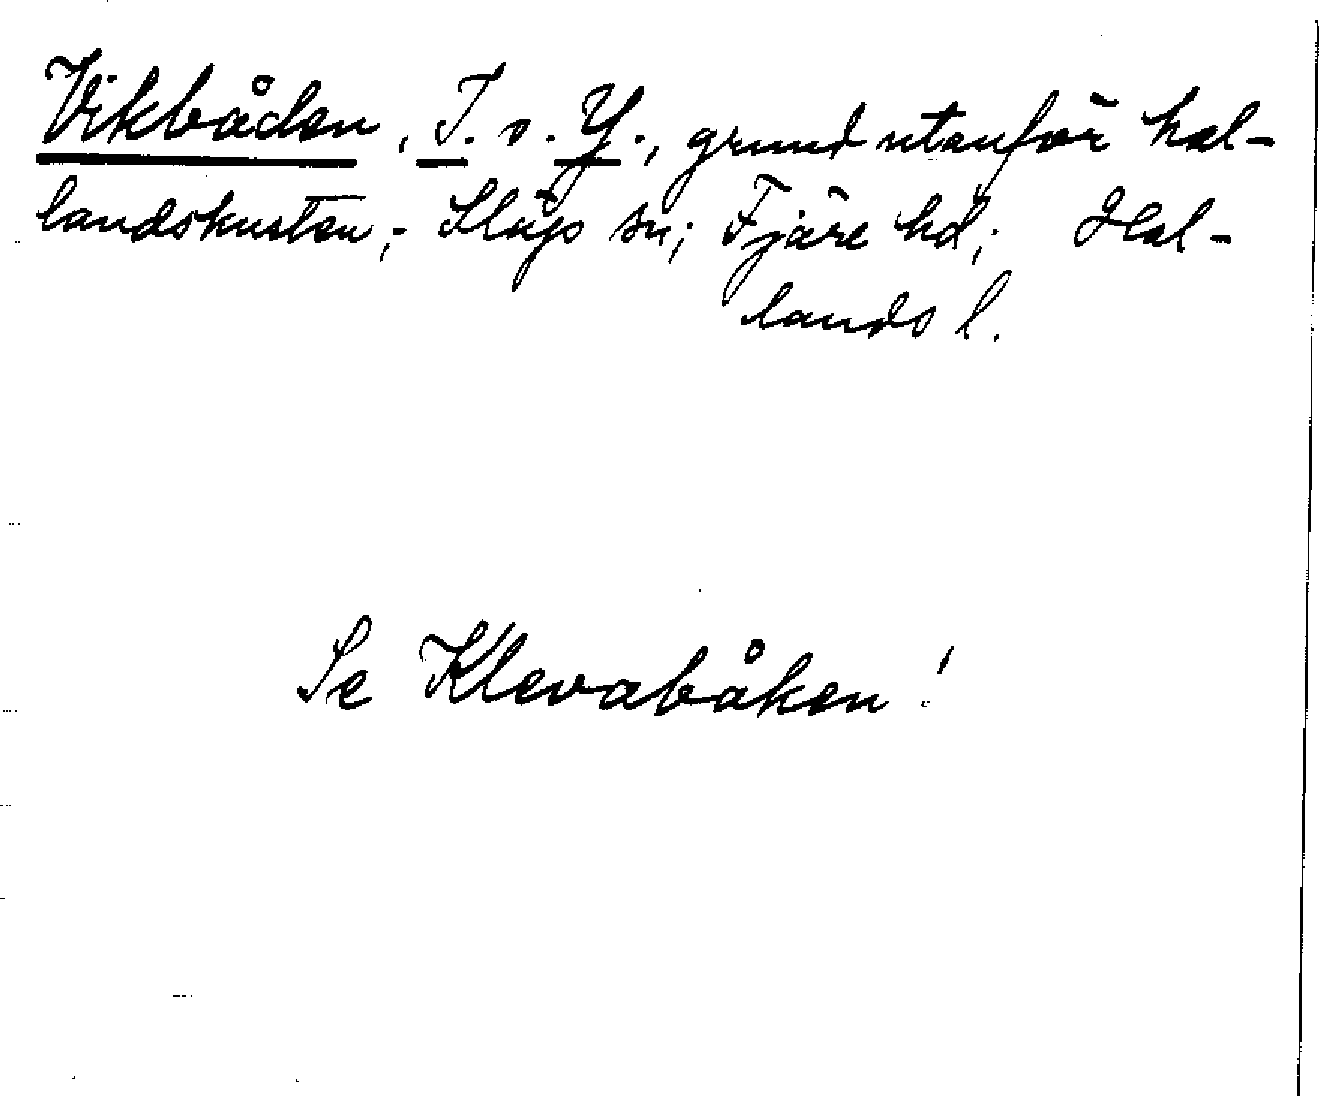 Vikbådan, I. o. Y., grund utanför hal-
landskusten; Släp sn; Fjäre hd; Hal-
lands l.
Se Klevabåken!